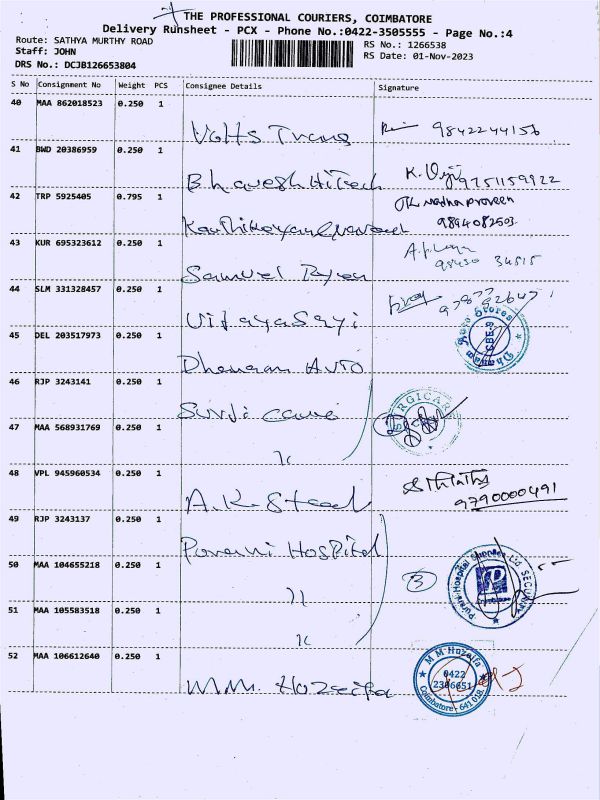 THE PROFESSIONAL COURIERS, COIMBATORE
Delivery Runsheet - PCX - Phone No.:0422-3505555 - Page No.:4
Route: SATHYA MURTHY ROAD
Staff: JOHN
DRS No.: DCJB126653804
RS No.: 1266538
RS Date: 01-Nov-2023
S No Consignment No Weight PCS Consignee Details Signature
40 MAA 862018523 0.250 1
Volts Trans 9842244156
41 BWD 20386959 0.250 1
Bhavesh Hitech K. 9751159922
42 TRP 5925405 0.795 1
9894082503
43 KUR 695323612 0.250 1
Samuel 98430 34515
44 SLM 331328457 0.250 1
VijayaSayi
45 DEL 203517973 0.250 1
Dhanam Auto
Dhanam Auto Stores
CBE-9
46 RJP 3243141 0.250 1
Surji care
SURGICARE
47 MAA 568931769 0.250 1
48 VPL 945960534 0.250 1
A.K. Steel
9790000491
49 RJP 3243137 0.250 1
Poorani Hospital
50 MAA 104655218 0.250 1
3
SECURITY
51 MAA 105583518 0.250 1
52 MAA 106612640 0.250 1
M.M. Huzaifa
M M Huzaifa
0422
2306651
Coimbatore - 641 018.